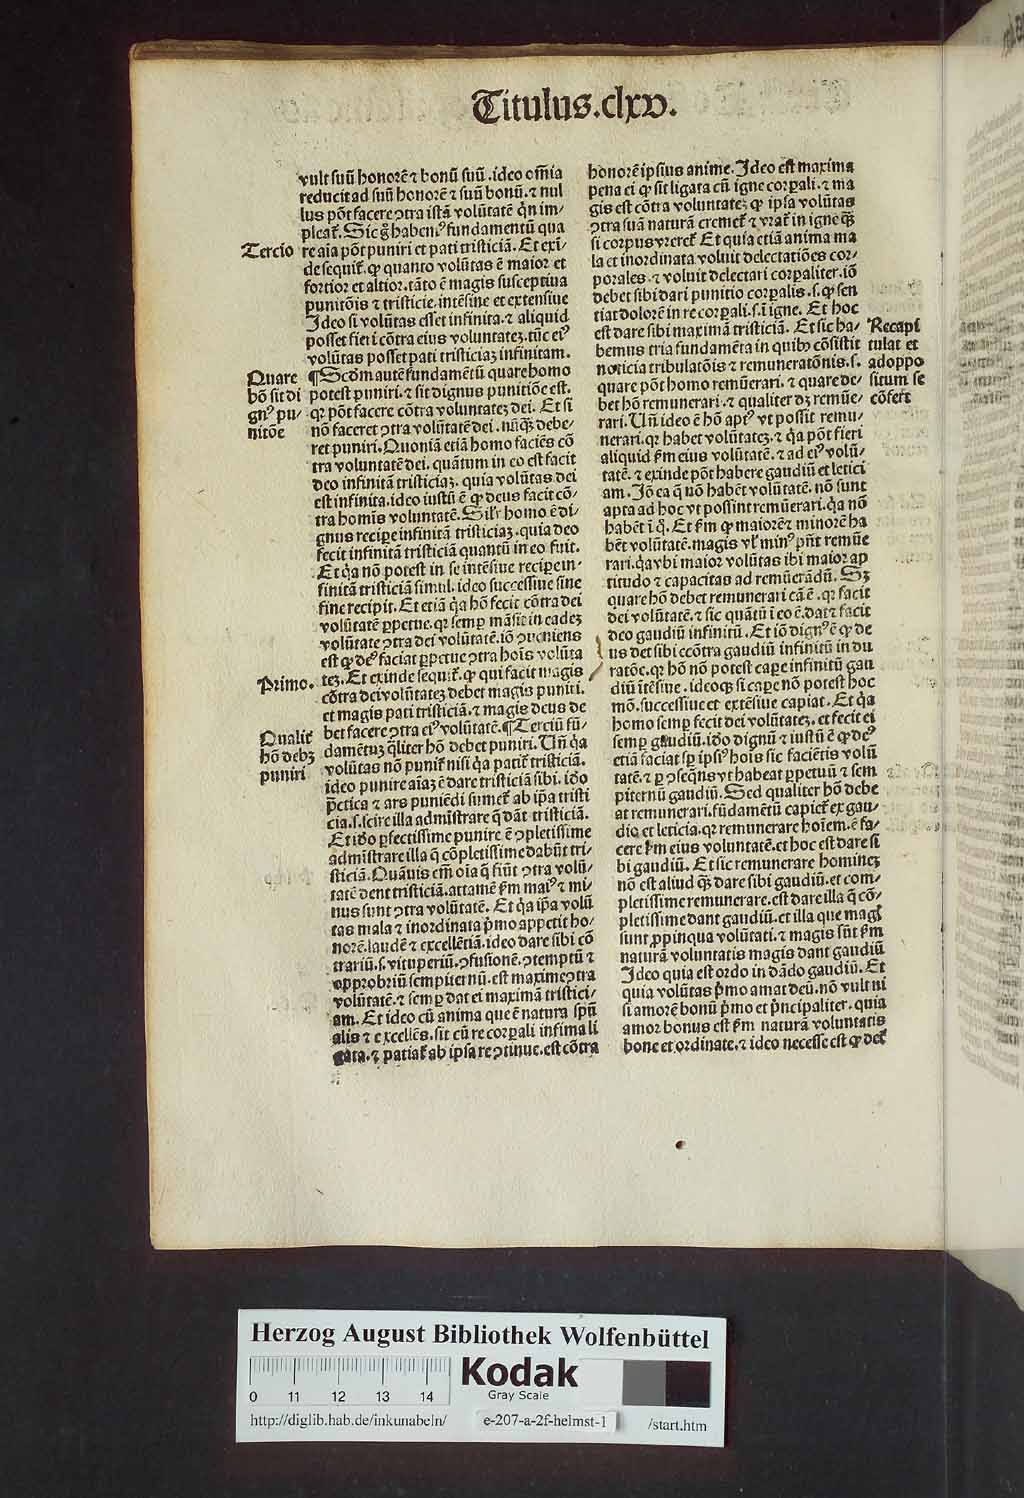 Titulus.clxv.
vult suū honorē ⁊ bonū suū .ideo om̄ia
reducit ad suū honorē ⁊ suū bonū.⁊ nul
lus pōt facere ↄtra istā volūtatē qn̄ im⸗
pleat᷑. Sic g̊ habemꝰ fundamentū qua
Tercio
re aīa pōt puniri et pati tristiciā. Et exi⸗
de sequit᷑.ꝙ quanto volūtas ē maior et
fortior et altior.tāto ē magis susceptiua
punitōis ⁊ tristicie.intēsiue et extensiue
Ideo si volūtas esset infinita.⁊ aliquid
posset fieri ī cōtra eius voluntatez.tūc eiꝰ
volūtas posset pati tristiciaz infinitam.
Quare
hō sit di
gnꝰ pu⸗
nitōe
¶Scd̄m autē fundamētū quare homo
potest puniri.⁊ sit dignus punitiōe est.
qꝛ pōt facere cōtra voluntatez dei. Et si
nō faceret ↄtra volūtatē dei .nūq̄ꝫ debe⸗
ret puniri. Quoniā etiā homo faciēs cō
tra voluntatē dei. quātum in eo est facit
deo infinitā tristiciaꝫ. quia volūtas dei
est infinita.ideo iustū ē ꝙ deus facit cō⸗
tra homīs voluntatē. Silr̄ homo ē di⸗
gnus recipe infinitā tristiciaꝫ.quia deo
fecit infinitā tristiciā quantū in eo fuit.
Et q̇a nō potest in se intēsiue recipe in⸗
finitā tristiciā simul.ideo successiue sine
fine recipit. Et etiā q̇a hō fecit cōtra dei
volūtatē ꝑpetue.qꝛ semꝑ māsit in eadeꝫ
volūtate ↄtra dei volūtatē.iō ↄueniens
est ꝙ deꝰ faciat ꝑpetue ↄtra hoīs volūta
Primo.
teꝫ. Et exinde sequit᷑.ꝙ qui facit magis
cōtra dei volūtateꝫ debet magis puniri.
et magis pati tristiciā.⁊ magis deus de
bet facere ↄtra eiꝰ volūtatē.¶Terciū fū⸗
Qualit᷑
hō debꝫ
puniri
damētuꝫ q̄liter hō debet puniri. Un̄ q̇a
volūtas nō punit᷑ nisi q̇a patit᷑ tristiciā.
ideo punire aīaꝫ ē dare tristiciā sibi.ido
ꝑctica ⁊ ars puniēdi sumet᷑ ab ip̄a tristi
cia.s.scire illa admīstrare q̄ dāt tristiciā.
Et ido ꝑfectissime punire ē ↄpletissime
admīstrare illa q̄ cōpletissime dabūt tri⸗
sticiā. Quāuis em̄ oīa q̄ fiūt ↄtra volū⸗
tatē dent tristiciā.attamē ẜm maiꝰ ⁊ mi⸗
nus sunt ↄtra volūtatē. Et q̇a ip̄a volū
tas mala ⁊ inordinata p̄mo appetit ho⸗
norē.laudē ⁊ excellētiā.ideo dare sibi cō
trariū.s.vituperiū.ↄfusionē.ↄtemptū ⁊
opprobriū sempiternū.est maxime ↄtra
volūtatē.⁊ semꝑ dat ei maximā tristici⸗
am. Et ideo cū anima que ē natura spū
alis ⁊ excellēs.sit cū re corꝑali infima li
gata.⁊ patiat᷑ ab ipsa re ↄtinue.est cōtra
honorē ipsius anime. Ideo est maxima
pena ei ꝙ sit ligata cū igne corꝑali.⁊ ma
gis est cōtra voluntateꝫ ꝙ ipsa volūtas
ↄtra suā naturā cremet᷑ ⁊ vrat᷑ in igne q̄ꝫ
si corpus vreret᷑ Et quia etiā anima ma
la et inordinata voluit delectatiōes cor⸗
porales.⁊ voluit delectari corꝑaliter.iō
debet sibi dari punitio corꝑalis.s.ꝙ sen
tiat dolorē in re corꝑali.s.ī igne. Et hoc
est dare sibi maximā tristiciā. Et sic ha⸗
Recapi
tulat et
adoppo
situm se
cōfert
bemus tria fundamēta in quibꝰ cōsistit
noticia tribulatōis ⁊ remuneratōnis.s.
quare pōt homo remūerari.⁊ quare de⸗
bet hō remunerari.⁊ qualiter dꝫ remūe⸗
rari. Un̄ ideo ē hō aptꝰ vt possit remu⸗
nerari.qꝛ habet voluntateꝫ.⁊ q̇a pōt fieri
aliquid ẜm eius volūtatē.⁊ ad eiꝰ volū⸗
tatē.⁊ exinde pōt habere gaudiū et letici
am. Iō ea q̄ nō habēt volūtatē.nō sunt
apta ad hoc vt possint remūerari.q̇a nō
habēt ī q̊. Et ẜm ꝙ maiorē ⁊ minorē ha
bēt volūtatē.magis vl̄ minꝰ pn̄t remūe
rari.q̇a vbi maior volūtas ibi maior ap
titudo ⁊ capacitas ad remūerādū. Sꝫ
quare hō debet remunerari cā ē .qꝛ facit
dei volūtatē.⁊ sic quātū ī eo ē.dat ⁊ facit
deo gaudiū infinitū. Et iō dignꝰ ē ꝙ de
us det sibi ecōtra gaudiū infinitū in du
ratōe.qꝛ hō nō potest cape infinitū gau
diū ītēsiue.ideoqꝫ si cape nō potest hoc
mō.successiue et extēsiue capiat. Et q̇a
homo semꝑ fecit dei volūtateꝫ.et fecit ei
semꝑ gaudiū.ido dignū ⁊ iustū ē ꝙ deꝰ
etiā faciat sꝑ ipsiꝰ hoīs sic faciētis volū
tatē.⁊ ꝑ ↄseq̄ns vt habeat ꝑpetuū ⁊ sem
piternū gaudiū. Sed qualiter hō debe
at remunerari.fūdamētū capiet᷑ ex gau⸗
dio et leticia.qꝛ remunerare hoīem.ē fa⸗
cere ẜm eius voluntatē.et hoc est dare si
bi gaudiū. Et sic remunerare homineꝫ
nō est aliud q̄ꝫ dare sibi gaudiū.et com⸗
pletissime remunerare.est dare illa q̄ cō⸗
pletissime dant gaudiū.et illa que magꝭ
sunt ꝓpinqua volūtati.⁊ magis sūt ẜm
naturā voluntatis magis dant gaudiū
Ideo quia est ordo in dādo gaudiū. Et
quia volūtas p̄mo amat deū.nō vult ni
si amorē bonū p̄mo et p̄ncipaliter.quia
amor bonus est ẜm naturā voluntatis
bone et ordinate.⁊ ideo necesse est ꝙ det᷑
Herzog August Bibliothek Wolfenbüttel
Kodak
Gray Scale
0 11 12 13 14
http://diglib.hab.de/inkunabeln/ e-207-a-2f-helmst-1 /start.htm